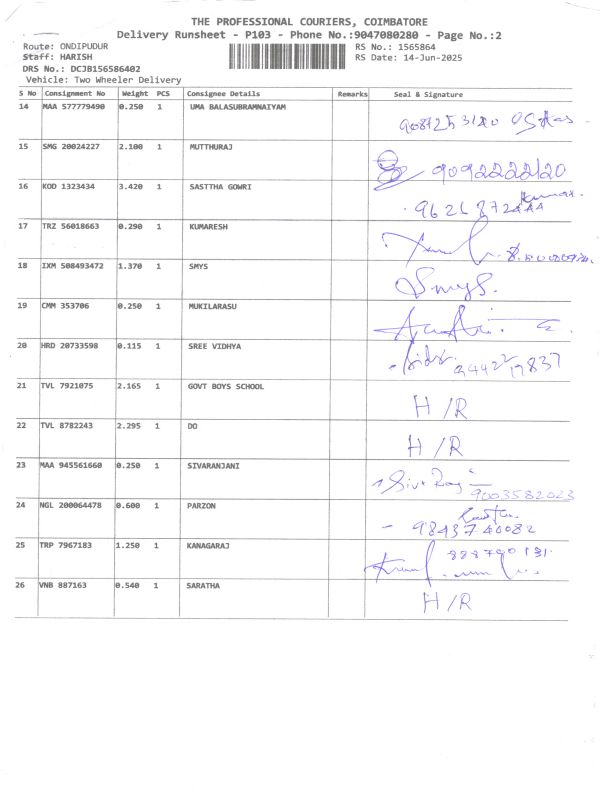 THE PROFESSIONAL COURIERS, COIMBATORE
Delivery Runsheet - P103 - Phone No.:9047080280 - Page No.:2
Route: ONDIPUDUR RS No.: 1565864
Staff: HARISH RS Date: 14-Jun-2025
DRS No.: DCJB156586402
Vehicle: Two Wheeler Delivery
S No Consignment No Weight PCS Consignee Details Remarks Seal & Signature
14 MAA 577779490 0.250 1 UMA BALASUBRAMNAIYAM
15 SMG 20024227 2.100 1 MUTTHURAJ 9092222120
16 KOD 1323434 3.420 1 SASTTHA GOWRI Kumar.
17 TRZ 56018663 0.290 1 KUMARESH
18 IXM 508493472 1.370 1 SMYS Smys.
19 CMM 353706 0.250 1 MUKILARASU
20 HRD 20733598 0.115 1 SREE VIDHYA
21 TVL 7921075 2.165 1 GOVT BOYS SCHOOL H/R
22 TVL 8782243 2.295 1 DO H/R
23 MAA 945561660 0.250 1 SIVARANJANI 9003582023
24 NGL 200064478 0.600 1 PARZON - 9843740082
25 TRP 7967183 1.250 1 KANAGARAJ
26 VNB 887163 0.540 1 SARATHA H/R